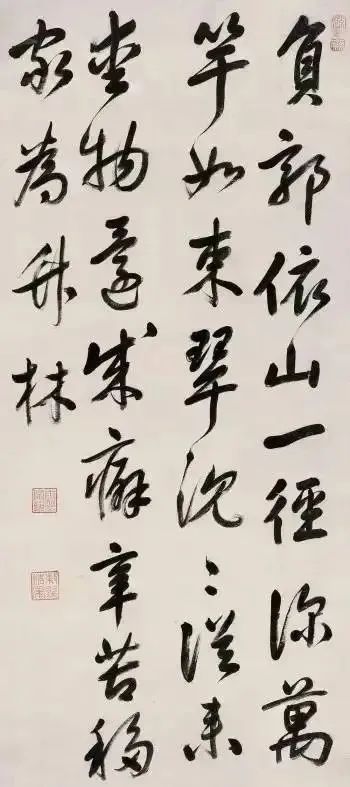 負郭依山一徑深萬
竿如束翠沈〻從來
愛物還成癖辛苦移
家為竹林